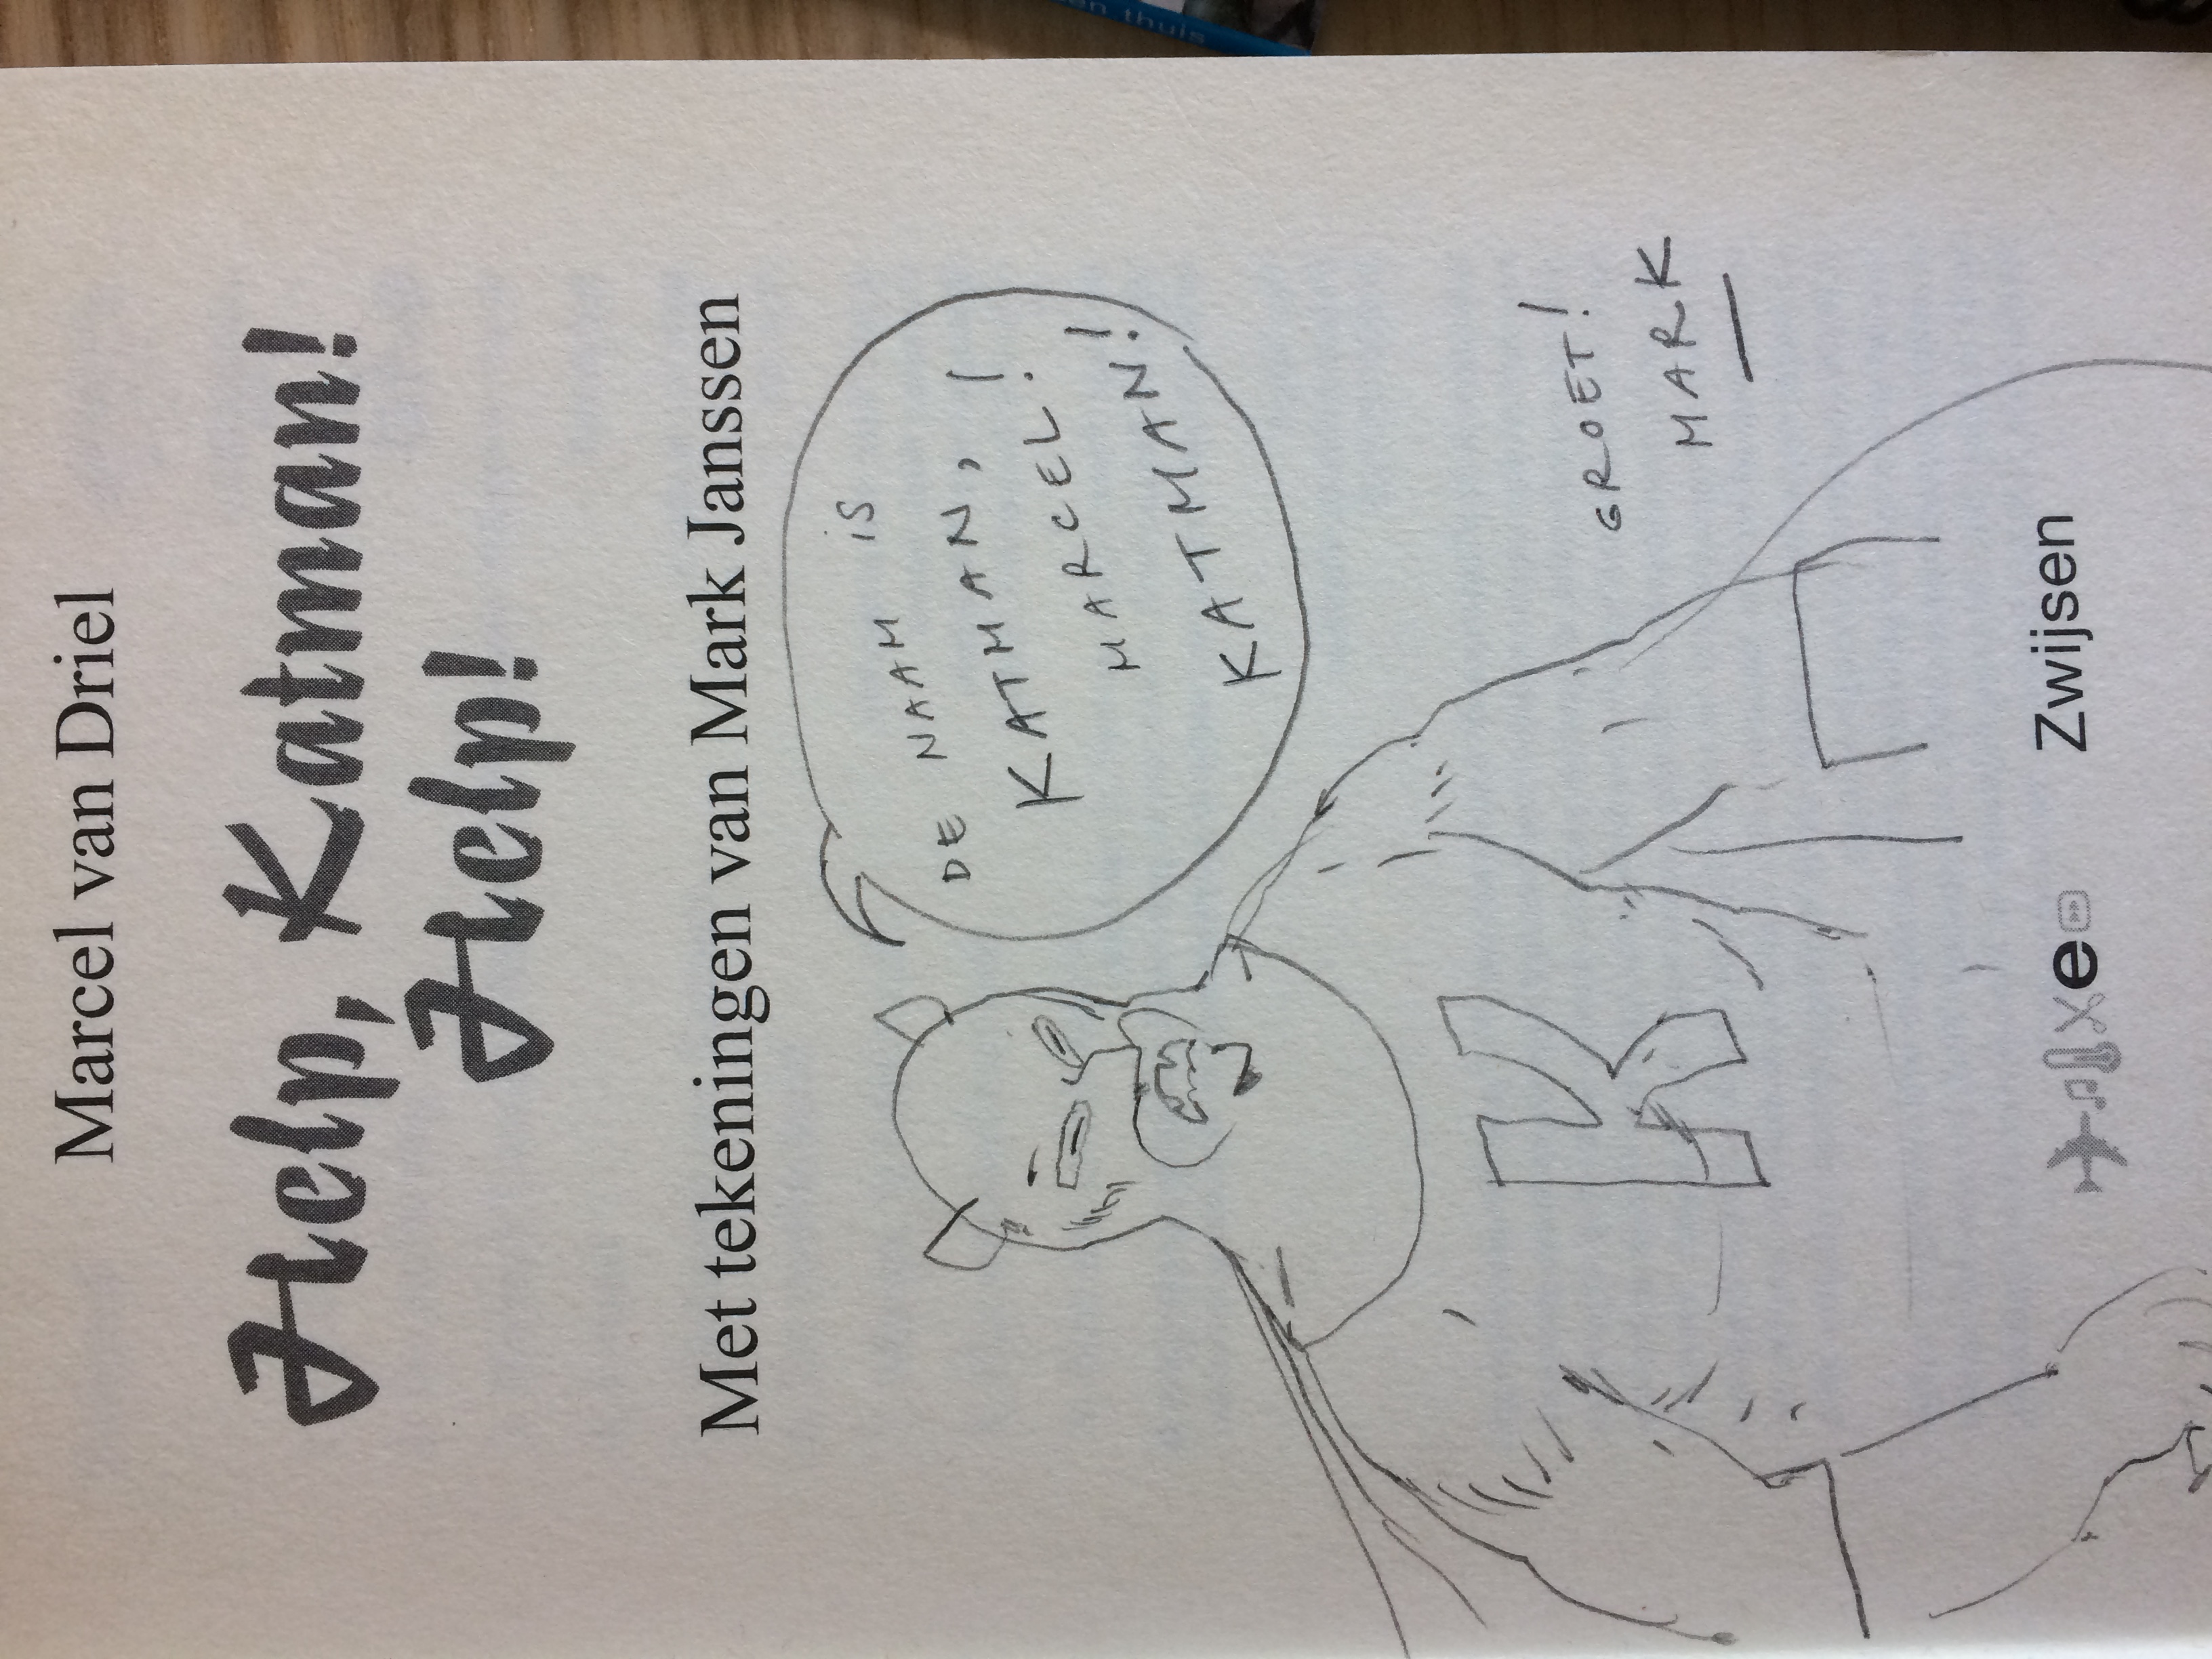 en thuis
Marcel van Driel
Help, Katman!
Help!
Met tekeningen van Mark Janssen
DE NAAM IS
KATMAN, !
MARCEL !
KATMAN!
GROET!
MARK
K
e
Zwijsen